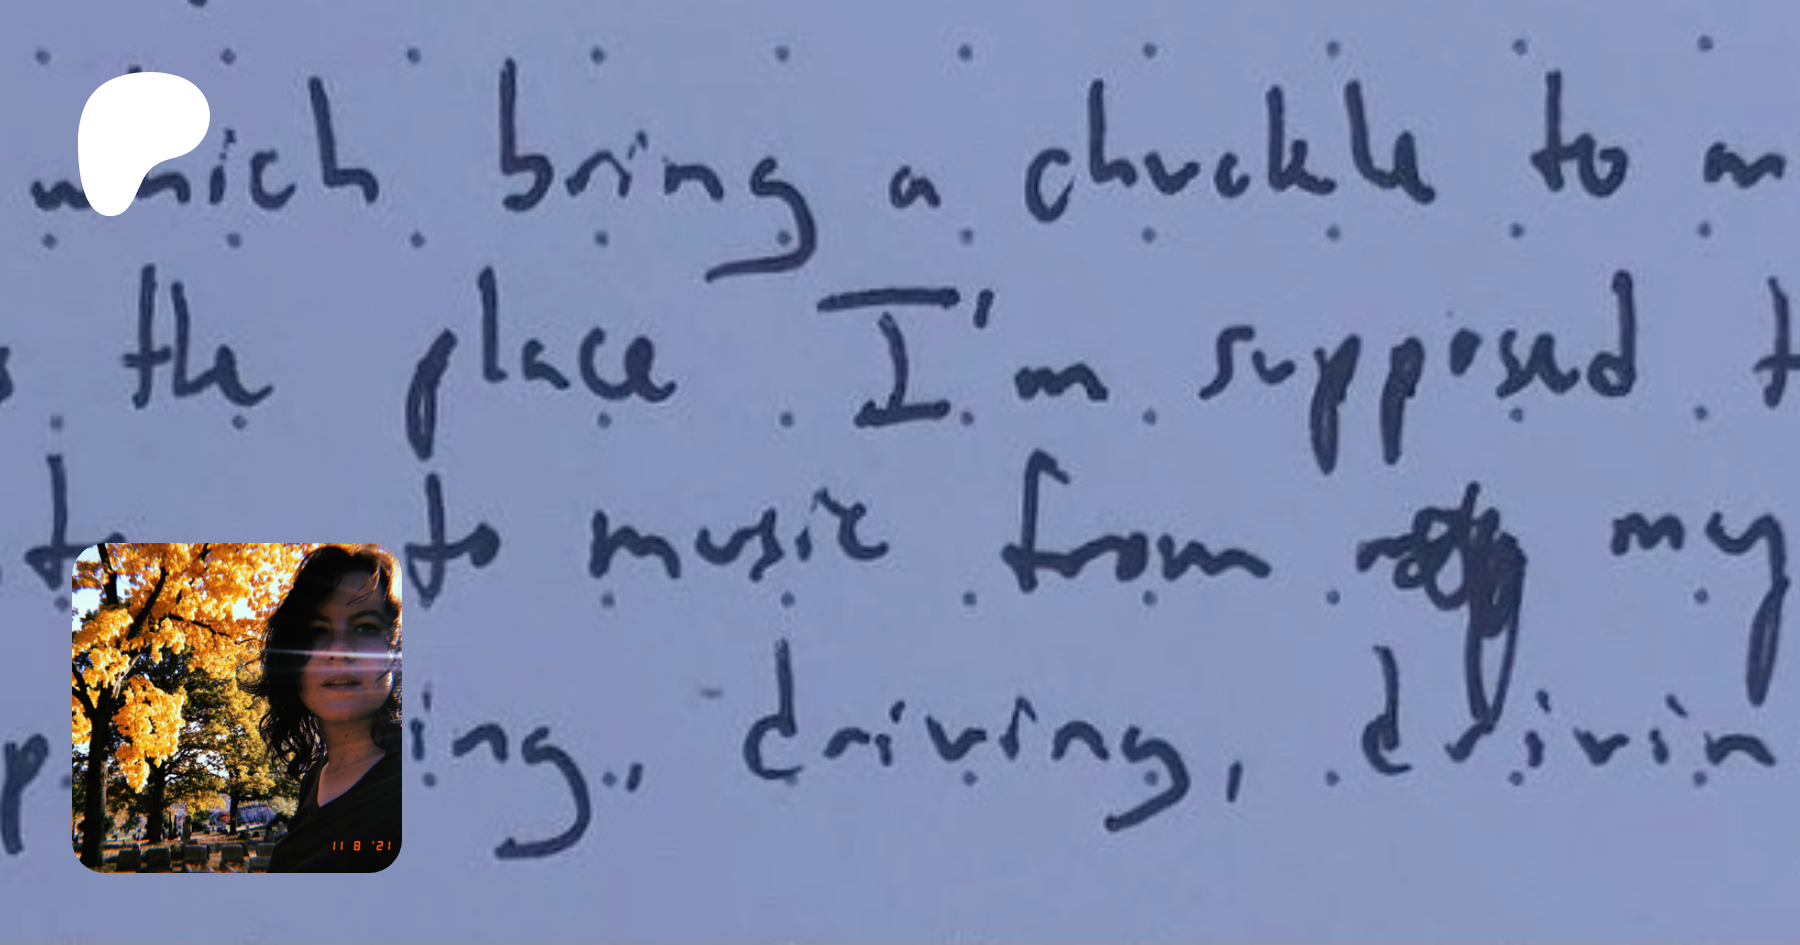 which bring a chuckle to m
s the place I'm supposed t
to to music from my
p ing, driving, drivin
11 8 '21